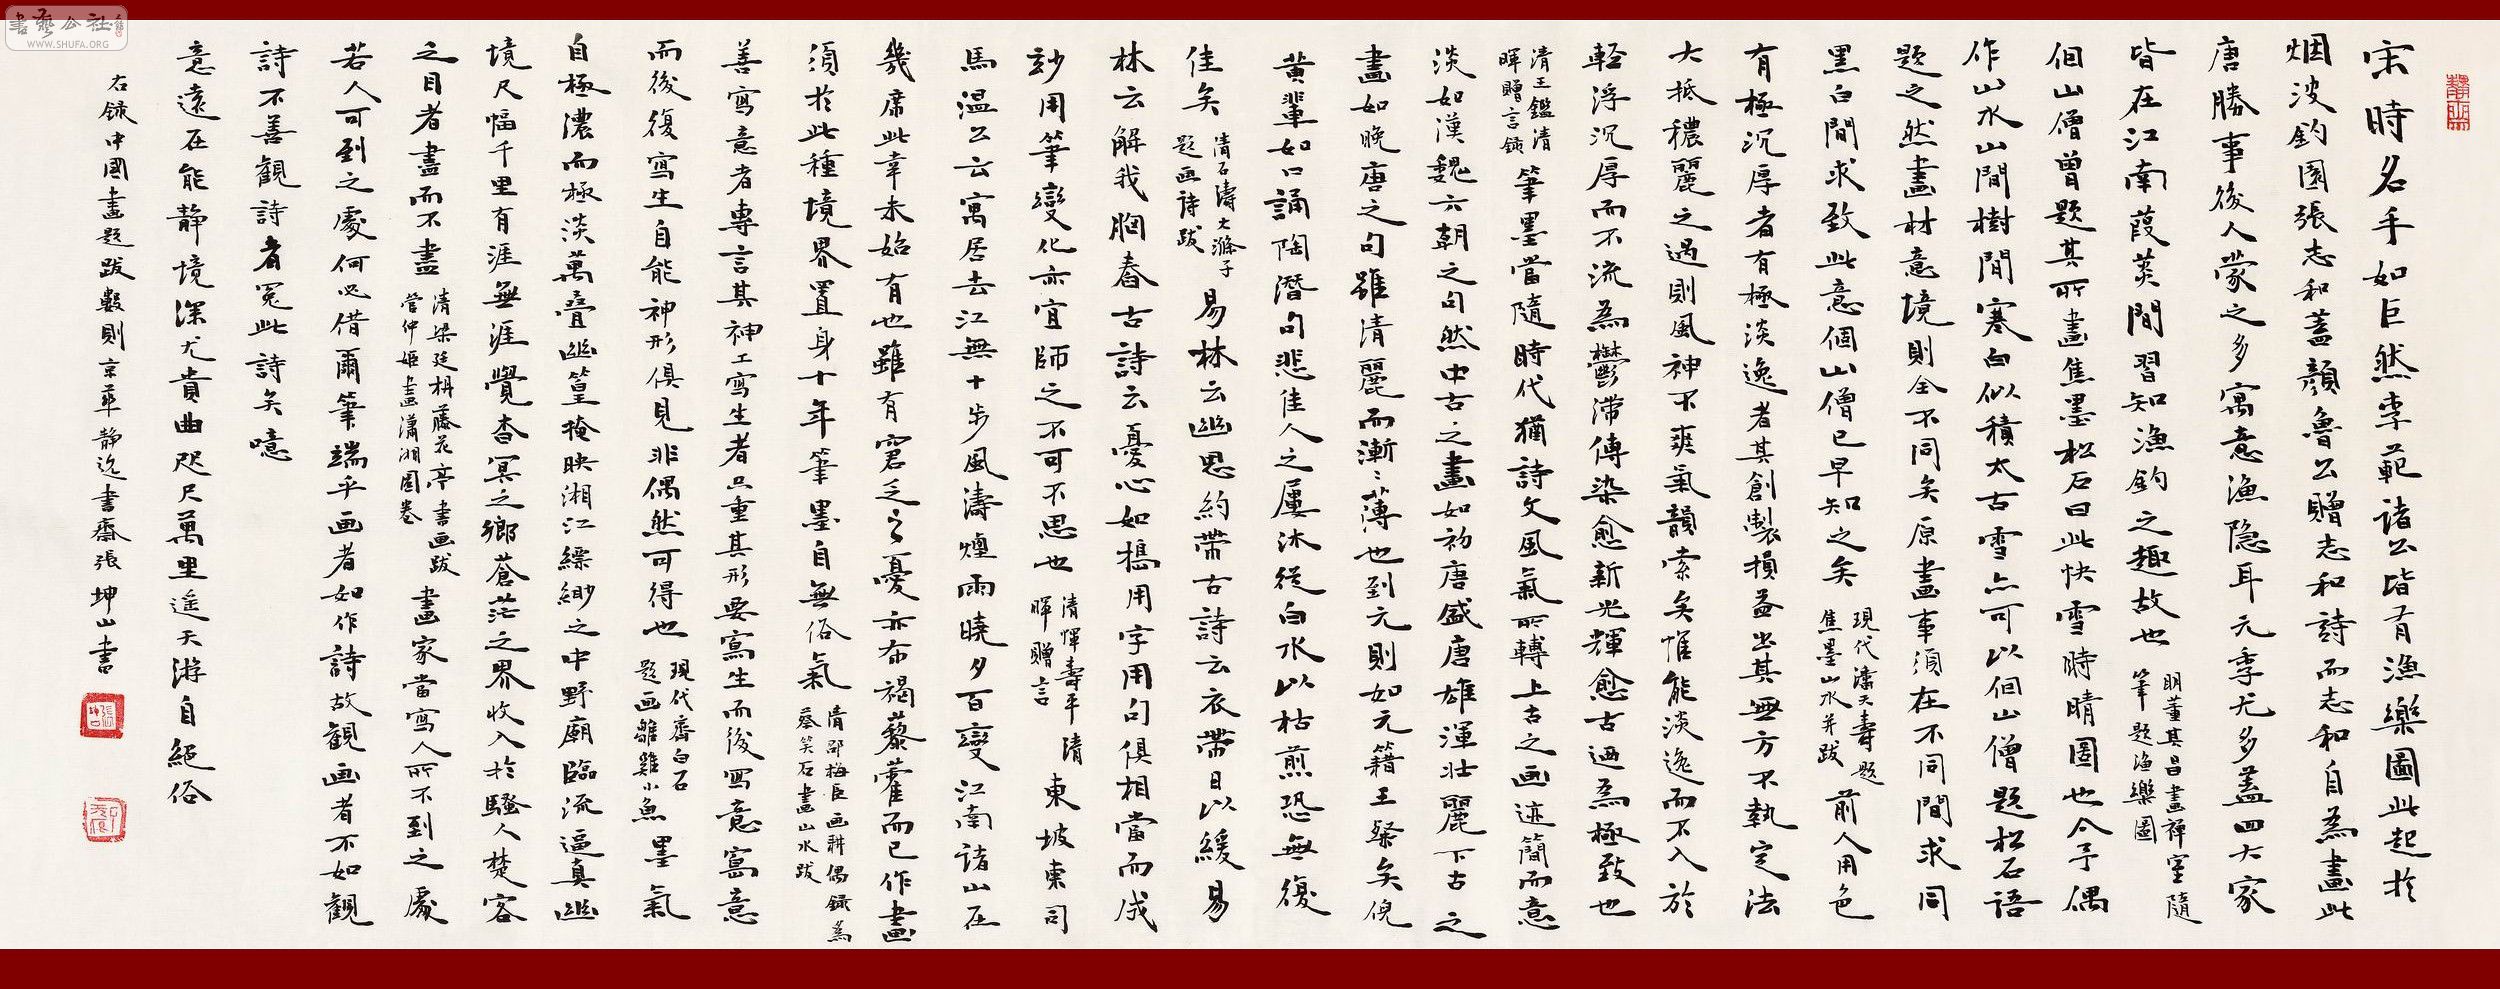 宋時名手如巨然李范諸公皆有漁樂圖此起於
烟波釣圖張志和蓋顏魯公贈志和詩而志和自為畫此
唐勝事後人蒙之多寓意漁隱耳元季尤多蓋四大家
皆在江南葭菼間習知漁釣之趣故也
明董其昌畫禪室隨
筆題漁樂圖
個山僧曾題其所畫焦墨松石曰此快雪時晴圖也今予偶
作山水山間樹間寒白似積太古雪亦可以個山僧題松石語
題之然畫材意境則全不同矣原畫事須在不同間求同
黑白間求致此意個山僧已早知之矣
現代潘天壽題
焦墨山水并跋
前人用色
有極沉厚者有極淡逸者其創製損益出其無方不執定法
大抵穠麗之過則風神不爽氣韻索矣惟能淡逸而不入於
輕浮沉厚而不流為鬱滯傳染愈新光輝愈古迺為極致也
清王鑑清
暉贈言錄
筆墨當隨時代猶詩文風氣所轉上古之画迹簡而意
淡如漢魏六朝之句然中古之畫如初唐盛唐雄渾壯麗下古之
畫如晚唐之句雖清麗而漸漸薄也到元則如元籍王粲矣倪
黃輩如口誦陶潛句悲佳人之屢沐從白水以枯煎恐無復
佳矣
清石濤大滌子
題画詩跋
易林云幽思約帶古詩云衣帶日以緩易
林云解我胸舂古詩云憂心如擣用字用句俱相當而成
妙用筆變化亦宜師之不可不思也
清惲壽平清
暉贈言
東坡東司
馬溫公云寓居去江無十步風濤煙雨曉夕百變江南諸山在
幾席此幸未始有也雖有窘乏之憂亦布褐藜藿而已作畫
須於此種境界置身十年筆墨自無俗氣
清邵梅臣画耕偶錄為
蔡笑石畫山水跋
善寫意者專言其神工寫生者只重其形要寫生而後寫意寫意
而後復寫生自能神形俱見非偶然可得也
現代齊白石
題画雛雞小魚
墨氣
自極濃而極淡萬疊幽篁掩映湘江縹緲之中野廟臨流逼真幽
境尺幅千里有涯無涯覺杳冥之鄉蒼茫之界收入於騷人楚客
之目者盡而不盡
清梁廷枏藤花亭書画跋
管仲姬畫瀟湘圖卷
畫家當寫人所不到之處
若人可到之處何必借爾筆端乎画者如作詩故觀画者不如觀
詩不善觀詩者冤此詩矣噫
意遠在能靜境深尤貴曲咫尺萬里遥天游自絕俗
右錄中國畫題跋數則京華靜逸書齋張坤山書
書藝公社
WWW.SHUFA.ORG